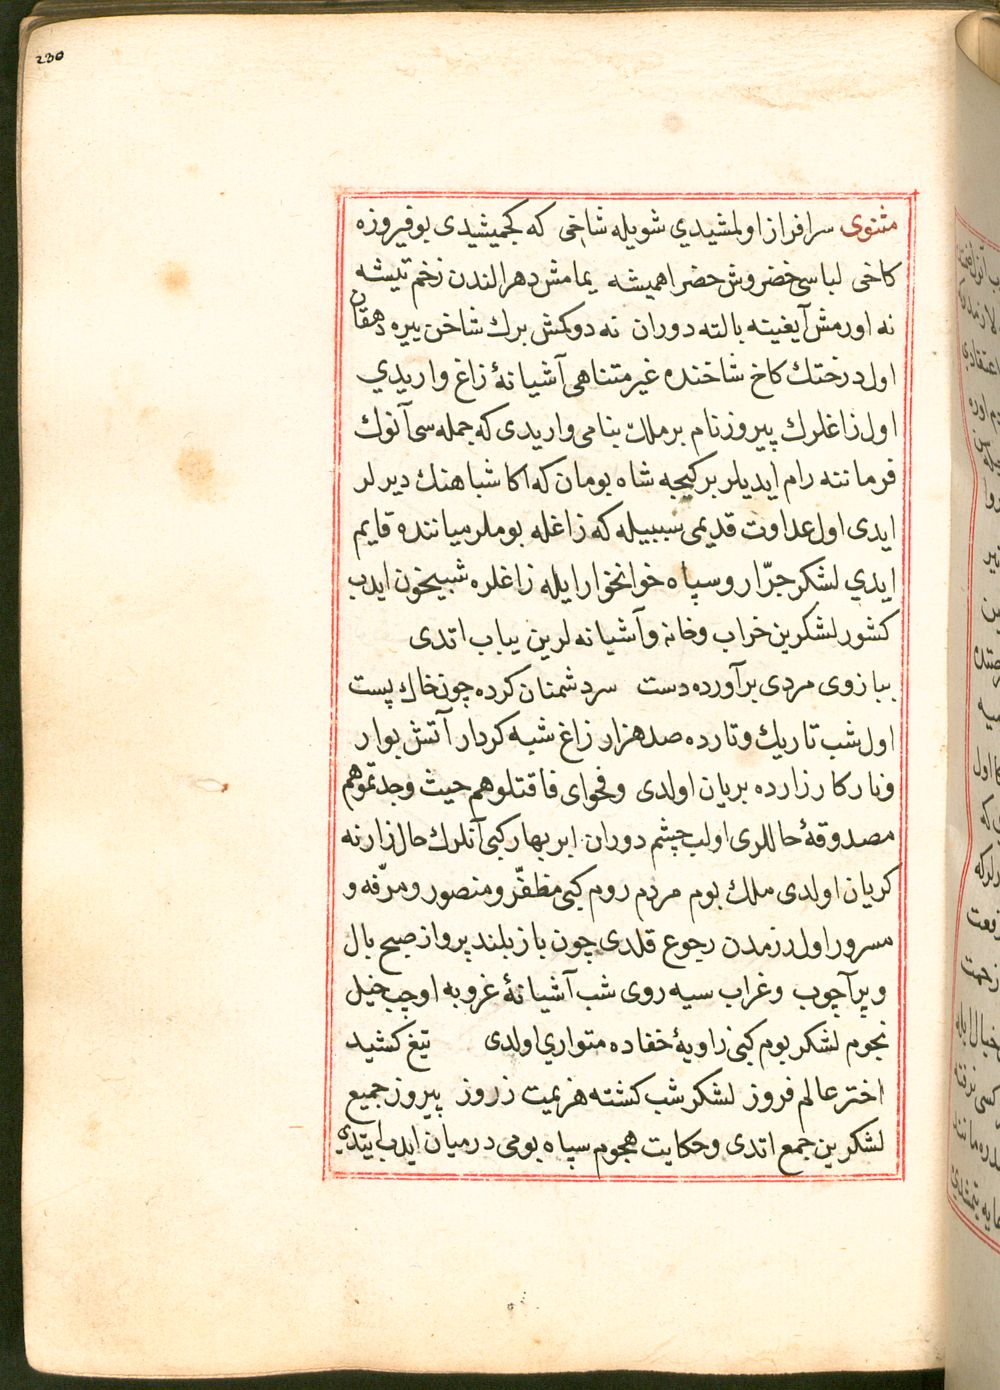 230
مثنوی سرافراز اولمشیدي شویله شاخی که کجمیشیدی بو فیروزه
کاخی لباسی خضروش حضرا همیشه یمامش دهر الندن زخم تیشه
نه اورمش آیغینه بالته دوران نه دوکمش برك شاخن پیره دهقان
اول درختك کاخ شاخنده غیر متناهی آشیانهٔ زاغ واریدي
اول زاغلرك پیروز نام بر ملك بنامی واریدی که جمله سی آنوك
فرماننه رام ایدیلر بر کیجه شاه بومان که اکا شباهنك دیرلر
ایدی اول عداوت قدیمی سببیله که زاغله بوملر میاننده قایم
ایدي لشکر جرّار و سپاه خوانخوار ایله زاغلره شبیخون ایدب
کشور لشکرین خراب وخانه وآشیانه لرین یباب اتدی
ببازوی مردی برآورده دست سر دشمنان کرده چون خاك پست
اول شب تاریك وتارده صد هزار زاغ شبه کردار آتش بوار
ونار کارزارده بریان اولدی وفحوای فاقتلوهم حیث وجدتموهم
مصدوقهٔ حاللری اولب چشم دوران ابر بهار کبی آنلرك حال زارنه
کریان اولدی ملك بوم مردم روم کبی مظفّر ومنصور ومرفّه و
مسرور اول رزمدن رجوع قلدی چون باز بلند پرواز صبح بال
و پر آچوب وغراب سیه روی شب آشیانهٔ غروبه اوچب خیل
نجوم لشکر بوم کبی زاویهٔ خفاده متواري اولدی تیغ کشید
اختر عالم فروز لشکر شب کشته هزیمت ز روز پیروز جمیع
لشکرین جمع اتدی وحکایت هجوم سپاه بومی درمیان ایدب ایتدي